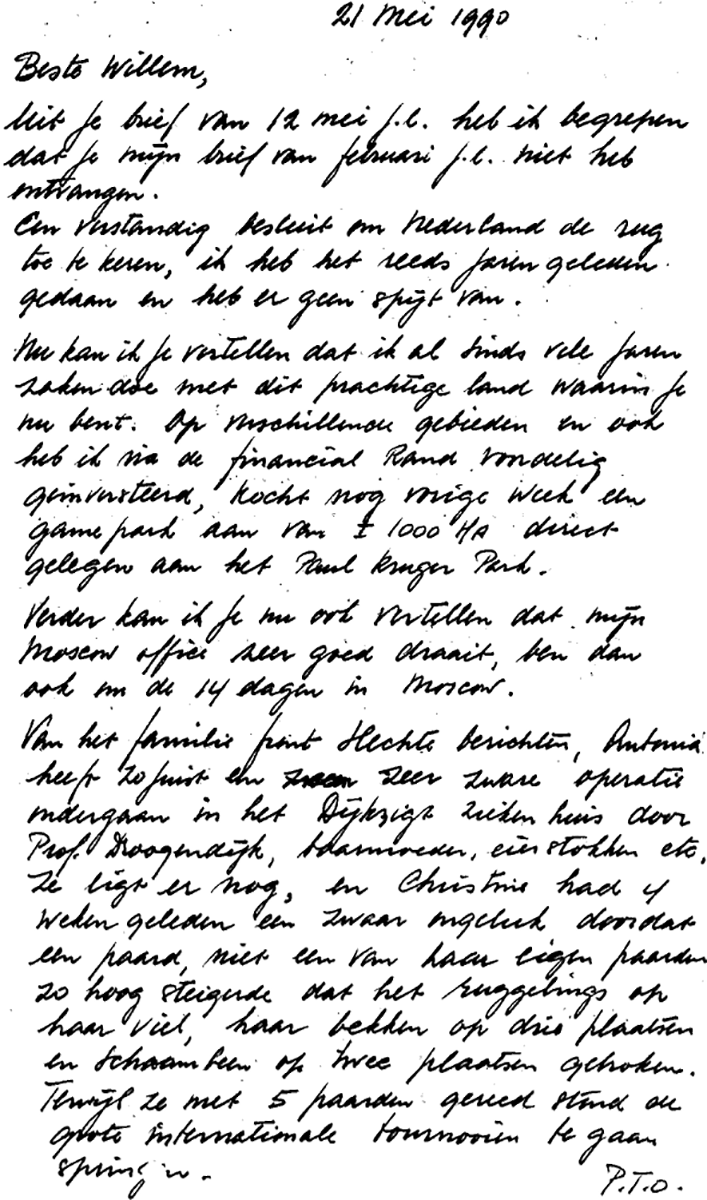 21 Mei 1990
Beste Willem,
Uit je brief van 12 mei j.l. heb ik begrepen
dat je mijn brief van februari j.l. niet heb
ontvangen.
Een verstandig besluit om Nederland de rug
toe te keren, ik heb het reeds jaren geleden
gedaan en heb er geen spijt van.
Nu kan ik je vertellen dat ik al sinds vele jaren
zaken doe met dit prachtige land waarin je
nu bent. Op verschillende gebieden en ook
heb ik via de financial Rand voordelig
geinversteerd, kocht nog vorige week een
game park aan van ± 1000 HA direct
gelegen aan het Paul Kruger Park.
Verder kan ik je nu ook vertellen dat mijn
Moscow office zeer goed draait, ben dan
ook om de 14 dagen in Moscow.
Van het familie front slechte berichten, Antonia
heeft zojuist een zeer zware operatie
ondergaan in het Dijkzigt ziekenhuis door
Prof. Droogendijk, baarmoeder, eierstokken etc.
Ze ligt er nog, en Christine had 4
weken geleden een zwaar ongeluk doordat
een paard, niet een van haar eigen paarden
zo hoog steigerde dat het ruggelings op
haar viel, haar bekken op drie plaatsen
en schaambeen op twee plaatsen gebroken.
Terwijl ze met 5 paarden gereed stond de
grote internationale tournooien te gaan
springen.
P.T.O.